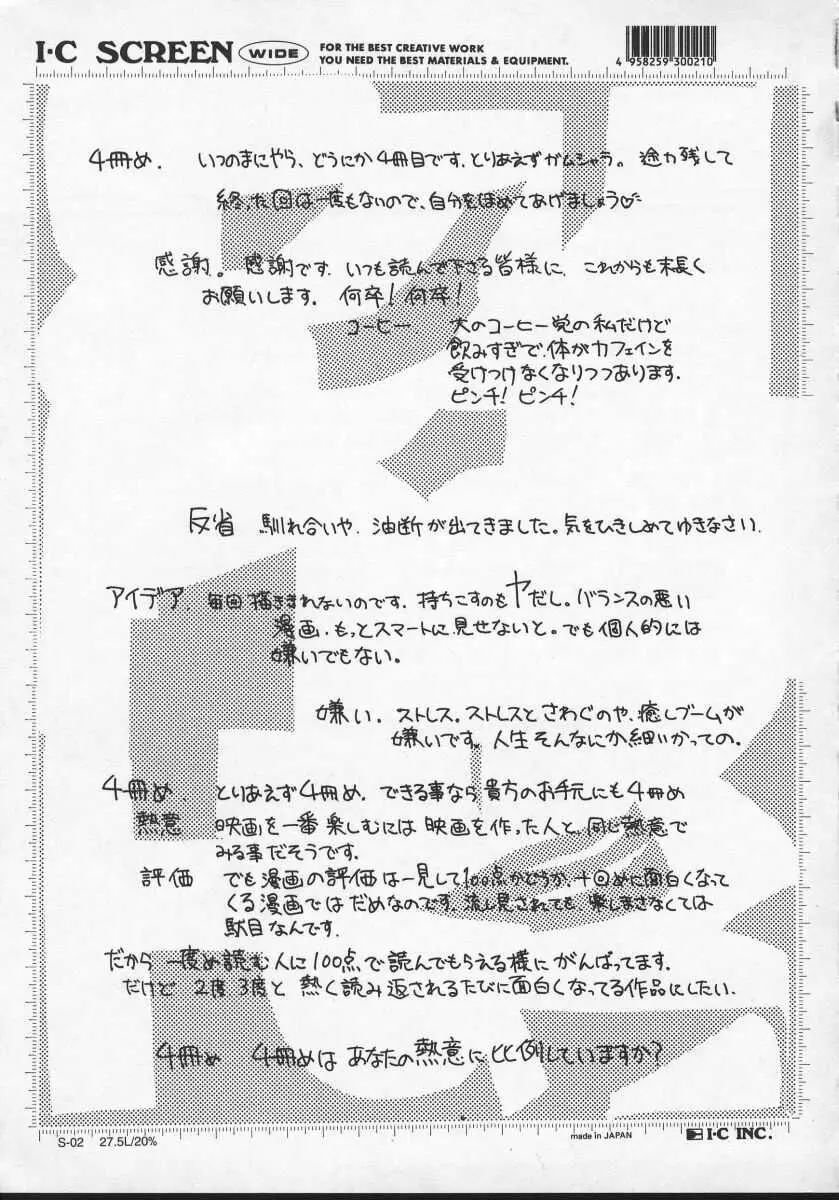 I·C SCREEN WIDE FOR THE BEST CREATIVE WORK
YOU NEED THE BEST MATERIALS & EQUIPMENT.
4 958259 300210
4冊め. いつのまにやら、どうにか4冊目です。とりあえずガムシャラ。途力残して
終った回は一度もないので、自分をほめてあげましょう♡
感謝。 感謝です。いつも読んで下さる皆様に、これからも末長く
お願いします。 何卒! 何卒!
コーヒー 大のコーヒー党の私だけど
飲みすぎで、体がカフェインを
受けつけなくなりつつあります.
ピンチ! ピンチ!
反省 馴れ合いや、油断が出てきました。気をひきしめてゆきなさい.
アイデア. 毎回描ききれないのです. 持ちこすのもヤだし。バランスの悪い
漫画. もっとスマートに見せないと。でも個人的には
嫌いでもない。
嫌い。 ストレス。ストレスとさわぐのや、癒しブームが
嫌いです。人生そんなにか細いかっての。
4冊め. とりあえず4冊め. できる事なら貴方のお手元にも4冊め
熱意 映画を一番楽しむには映画を作った人と、同じ熱意で
みる事だそうです.
評価 でも漫画の評価は一見して100点かどうか、十回めに面白くなって
くる漫画ではだめなのです。流し見されても、楽しまさなくては
駄目なんです.
だから 一度め読む人に100点で読んでもらえる様にがんばってます.
だけど 2度 3度と 熱く読み返されるたびに面白くなってる作品にしたい.
4冊め 4冊めは あなたの熱意に比例していますか?
S-02 27.5L/20% made in JAPAN I·C INC.